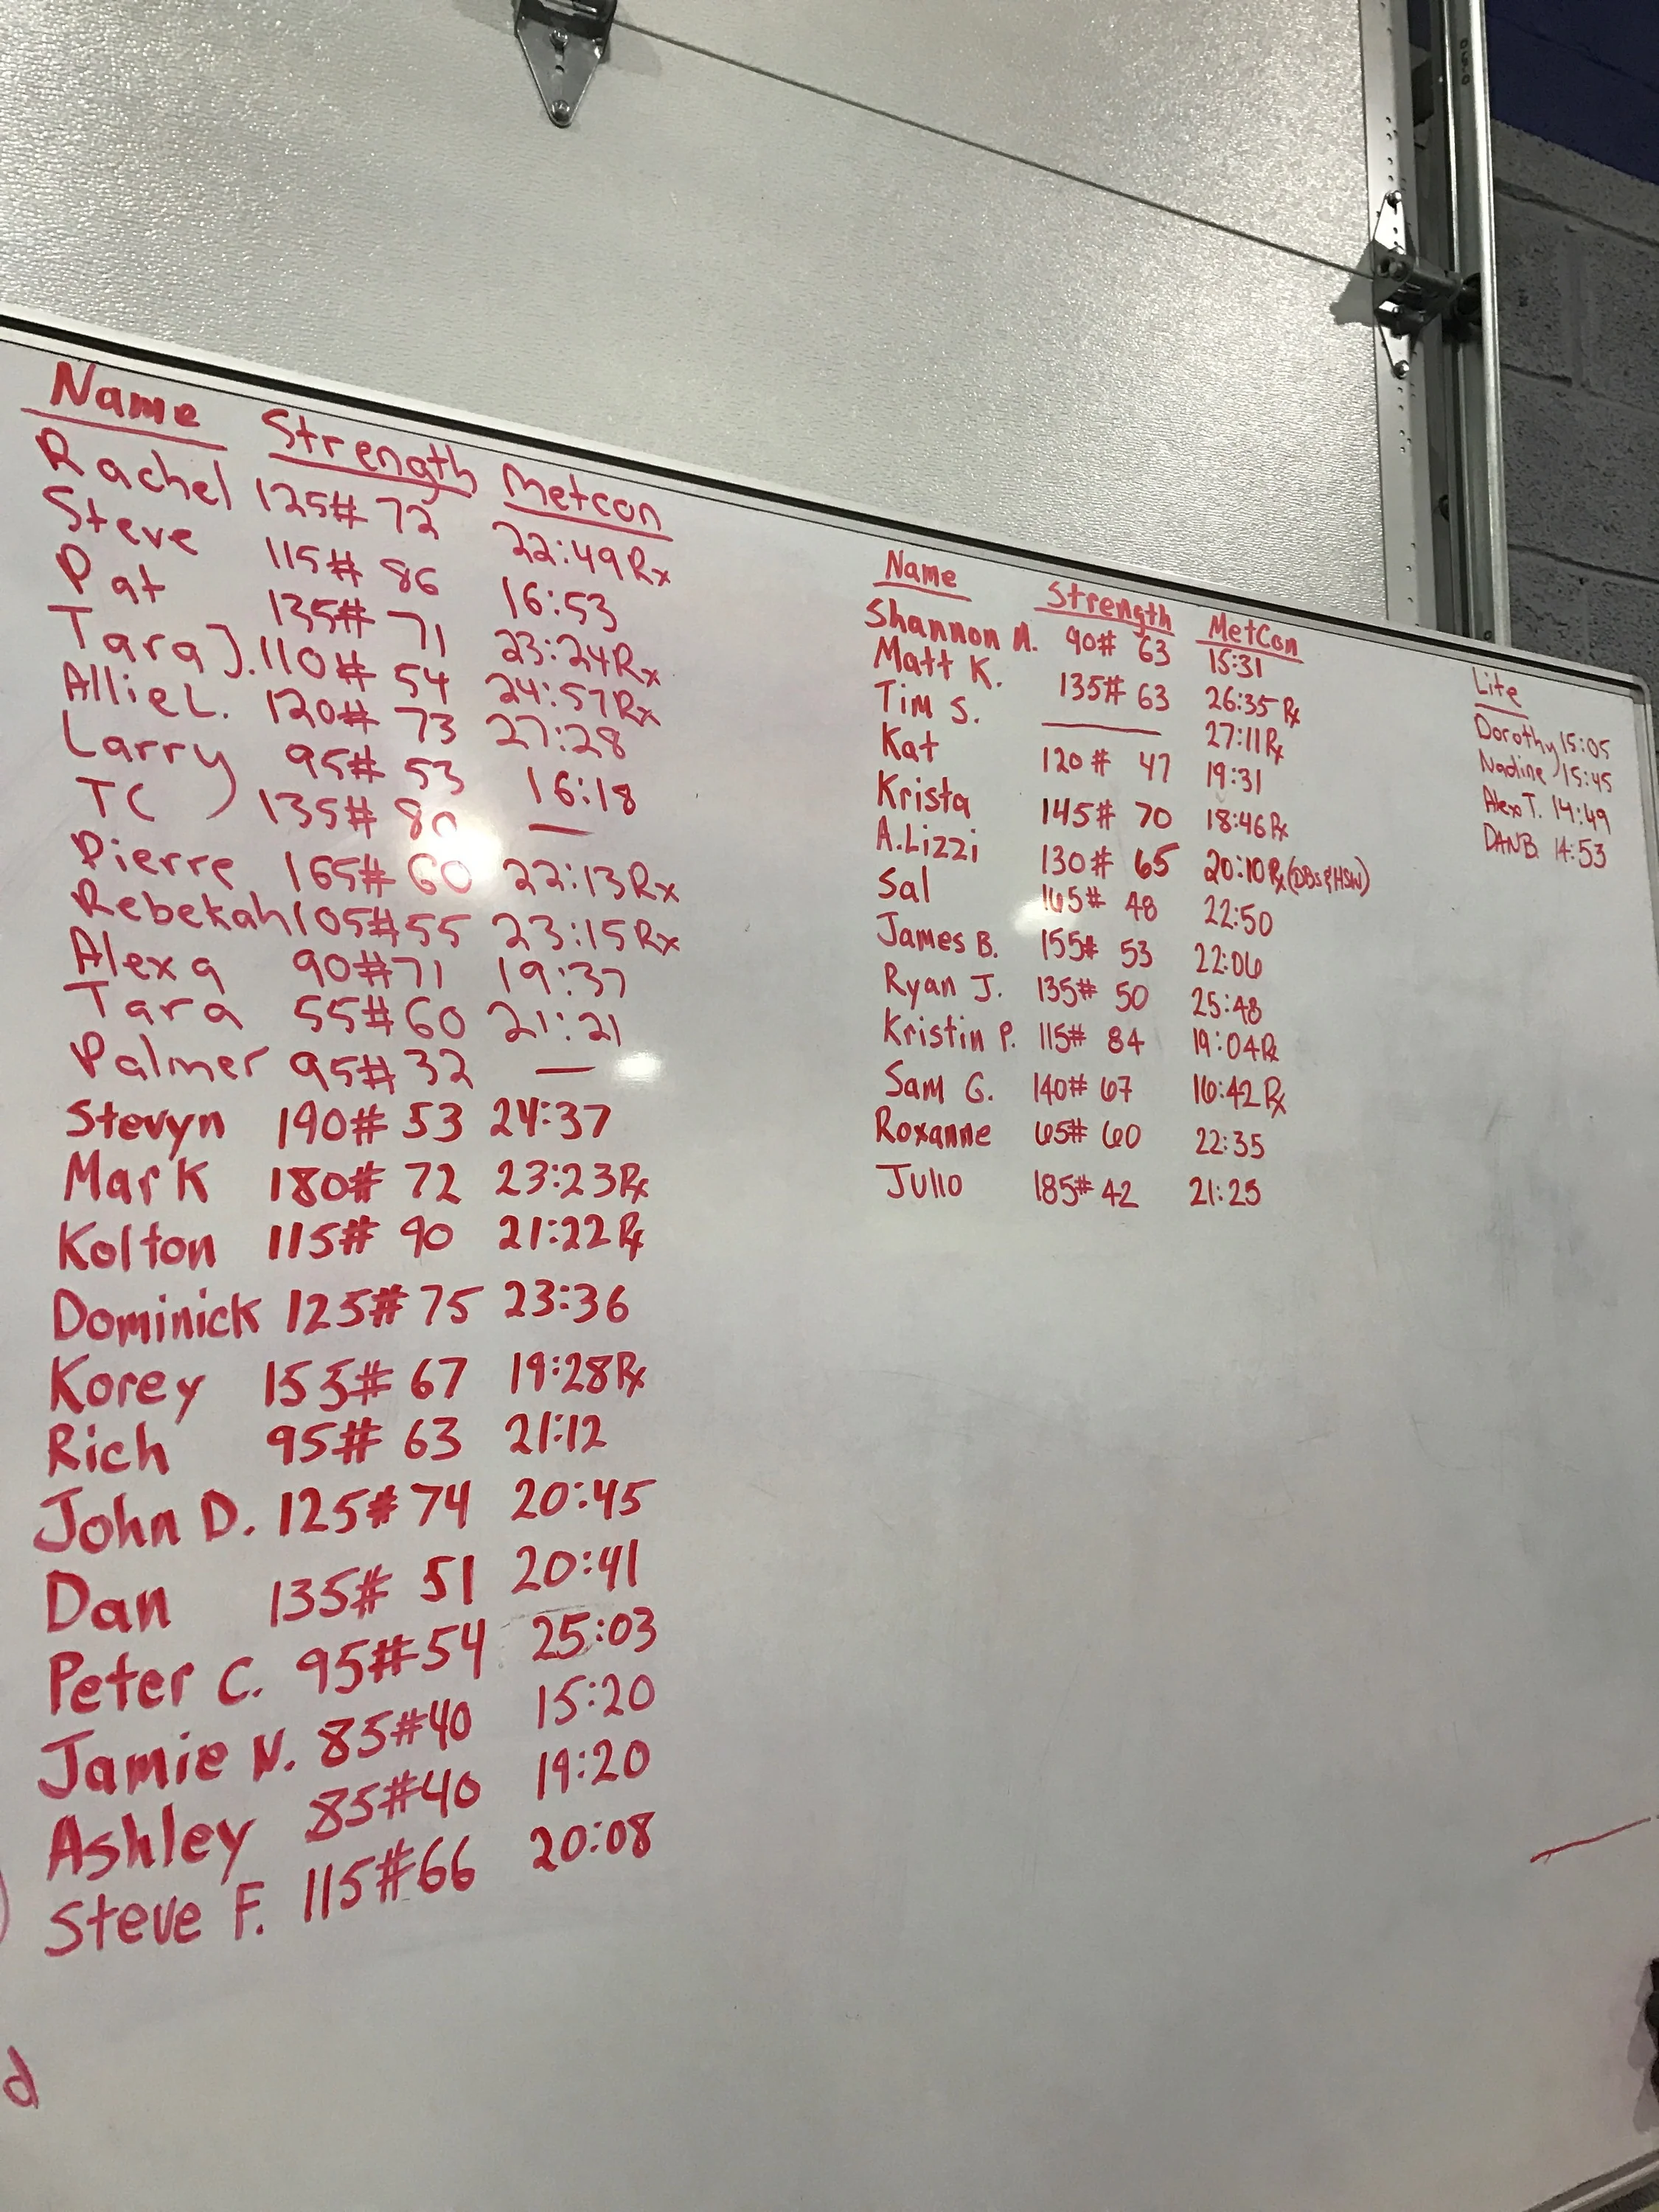 Name Strength Metcon
Rachel 125# 72 22:49 Rx
Steve 115# 86 16:53
Pat 135# 71 23:24 Rx
Tara J. 110# 54 24:57 Rx
Allie L. 120# 73 27:28
Larry 95# 53 16:18
TC 135# 80 —
Pierre 165# 60 22:13 Rx
Rebekah 105# 55 23:15 Rx
Alexa 90# 71 19:37
Tara 55# 60 21:21
Palmer 95# 32 —
Stevyn 190# 53 24:37
Mark 180# 72 23:23 Rx
Kolton 115# 90 21:22 Rx
Dominick 125# 75 23:36
Korey 155# 67 19:28 Rx
Rich 95# 63 21:12
John D. 125# 74 20:45
Dan 135# 51 20:41
Peter C. 95# 54 25:03
Jamie N. 85# 40 15:20
Ashley 85# 40 19:20
Steve F. 115# 66 20:08
d
Name Strength MetCon
Shannon N. 90# 63 15:31
Matt K. 135# 63 26:35 Rx
Tim S. — 27:11 Rx
Kat 120# 47 19:31
Krista 145# 70 18:46 Rx
A.Lizzi 130# 65 20:10 Rx (DBs & HSW)
Sal 165# 48 22:50
James B. 155# 53 22:06
Ryan J. 135# 50 25:48
Kristin P. 115# 84 19:04 Rx
Sam G. 140# 67 16:42 Rx
Roxanne 65# 60 22:35
Julio 185# 42 21:25
Lite
Dorothy 15:05
Nadine 15:45
Alex T. 14:49
DAN B. 14:53